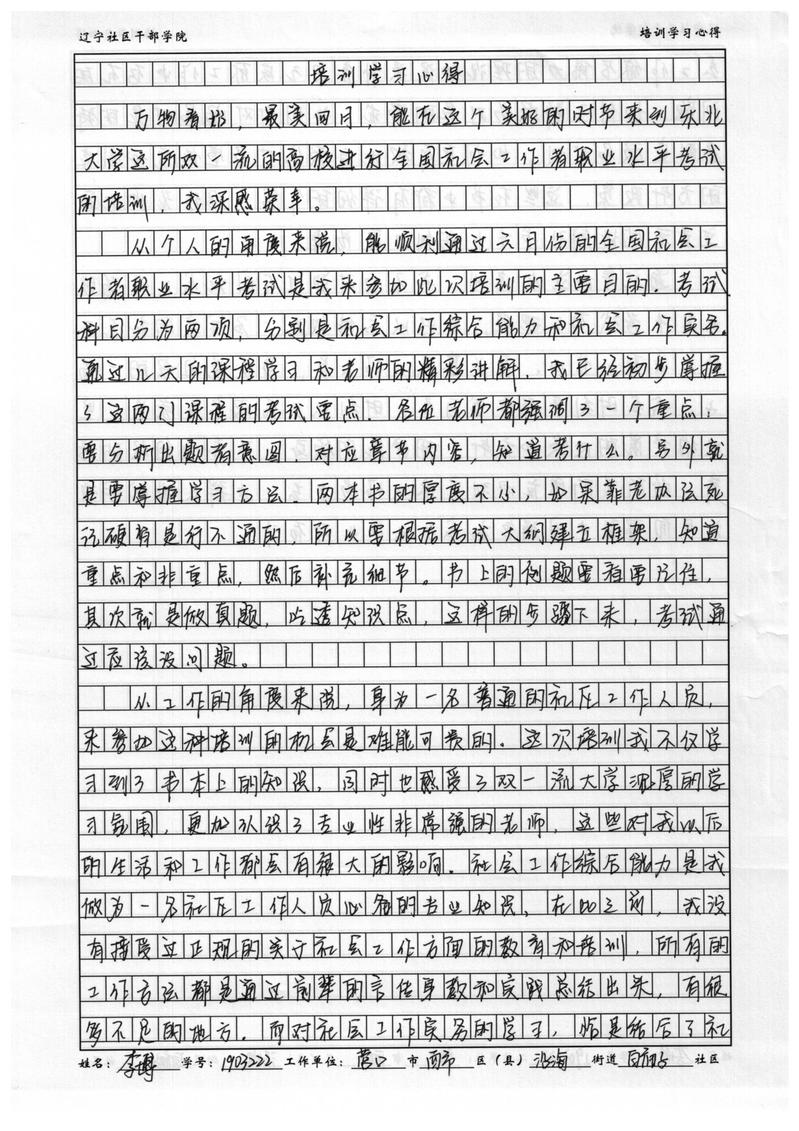 辽宁社区干部学院 培训学习心得
培训学习心得
万物看好，最美四月，能在这个美好的时节来到东北
大学这所双一流的高校进行全国社会工作者职业水平考试
的培训，我深感荣幸。
从个人的角度来说，能顺利通过六月份的全国社会工
作者职业水平考试是我来参加此次培训的主要目的．考试
科目分为两项，分别是社会工作综合能力和社会工作实务．
通过几天的课程学习和老师的精彩讲解．我已经初步掌握
了这两门课程的考试要点．各位老师都强调了一个重点：
要分析出题者意图．对应章节内容，知道考什么．另外就
是要掌握学习方法．两本书的厚度不小，如果靠老办法死
记硬背是行不通的，所以要根据考试大纲建立框架，知道
重点和非重点，然后补充细节。书上的例题要看要记住，
其次就是做真题，吃透知识点，这样的步骤下来，考试通
过应该没问题。
从工作的角度来说，身为一名普通的社区工作人员，
来参加这种培训的机会是难能可贵的．这次培训我不仅学
习到了书本上的知识，同时也感受了双一流大学浓厚的学
习氛围，更加认识了专业性非常强的老师，这些对我以后
的生活和工作都会有很大的影响．社会工作综合能力是我
做为一名社区工作人员必备的专业知识，在此之前，我没
有接受过正规的关于社会工作方面的教育和培训，所有的
工作方法都是通过前辈的言传身教和实战总结出来，有很
多不足的地方．而对社会工作实务的学习，恰是结合了社
姓名：李博 学号：1903222 工作单位：营口 市 西市 区（县） 沿海 街道 社区